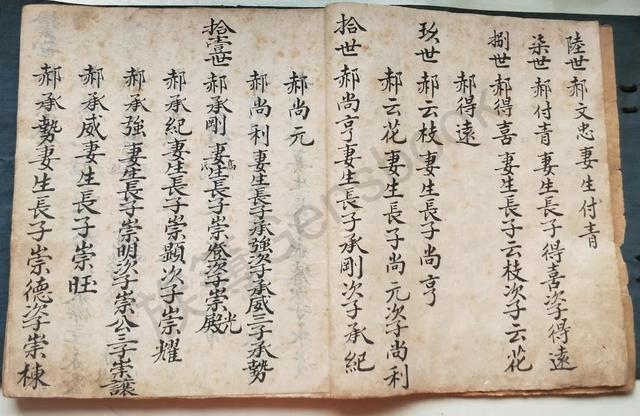 陸世 郝文忠妻生付青
柒世 郝付青妻生長子得喜次子得遠
捌世 郝得喜妻生長子云枝次子云花
郝得遠
玖世 郝云枝妻生長子尚亨
郝云花妻生長子尚元次子尚利
拾世 郝尚亨妻生長子承剛次子承紀
郝尚元
郝尚利妻生長子承強次子承威三子承勢
拾壹世 郝承剛妻生長子崇燈次子崇殿
郝承紀妻生長子崇顯次子崇耀
郝承強妻生長子崇明次子崇公三子崇讓
郝承威妻生長子崇旺
郝承勢妻生長子崇德次子崇棟
族譜Gensbook